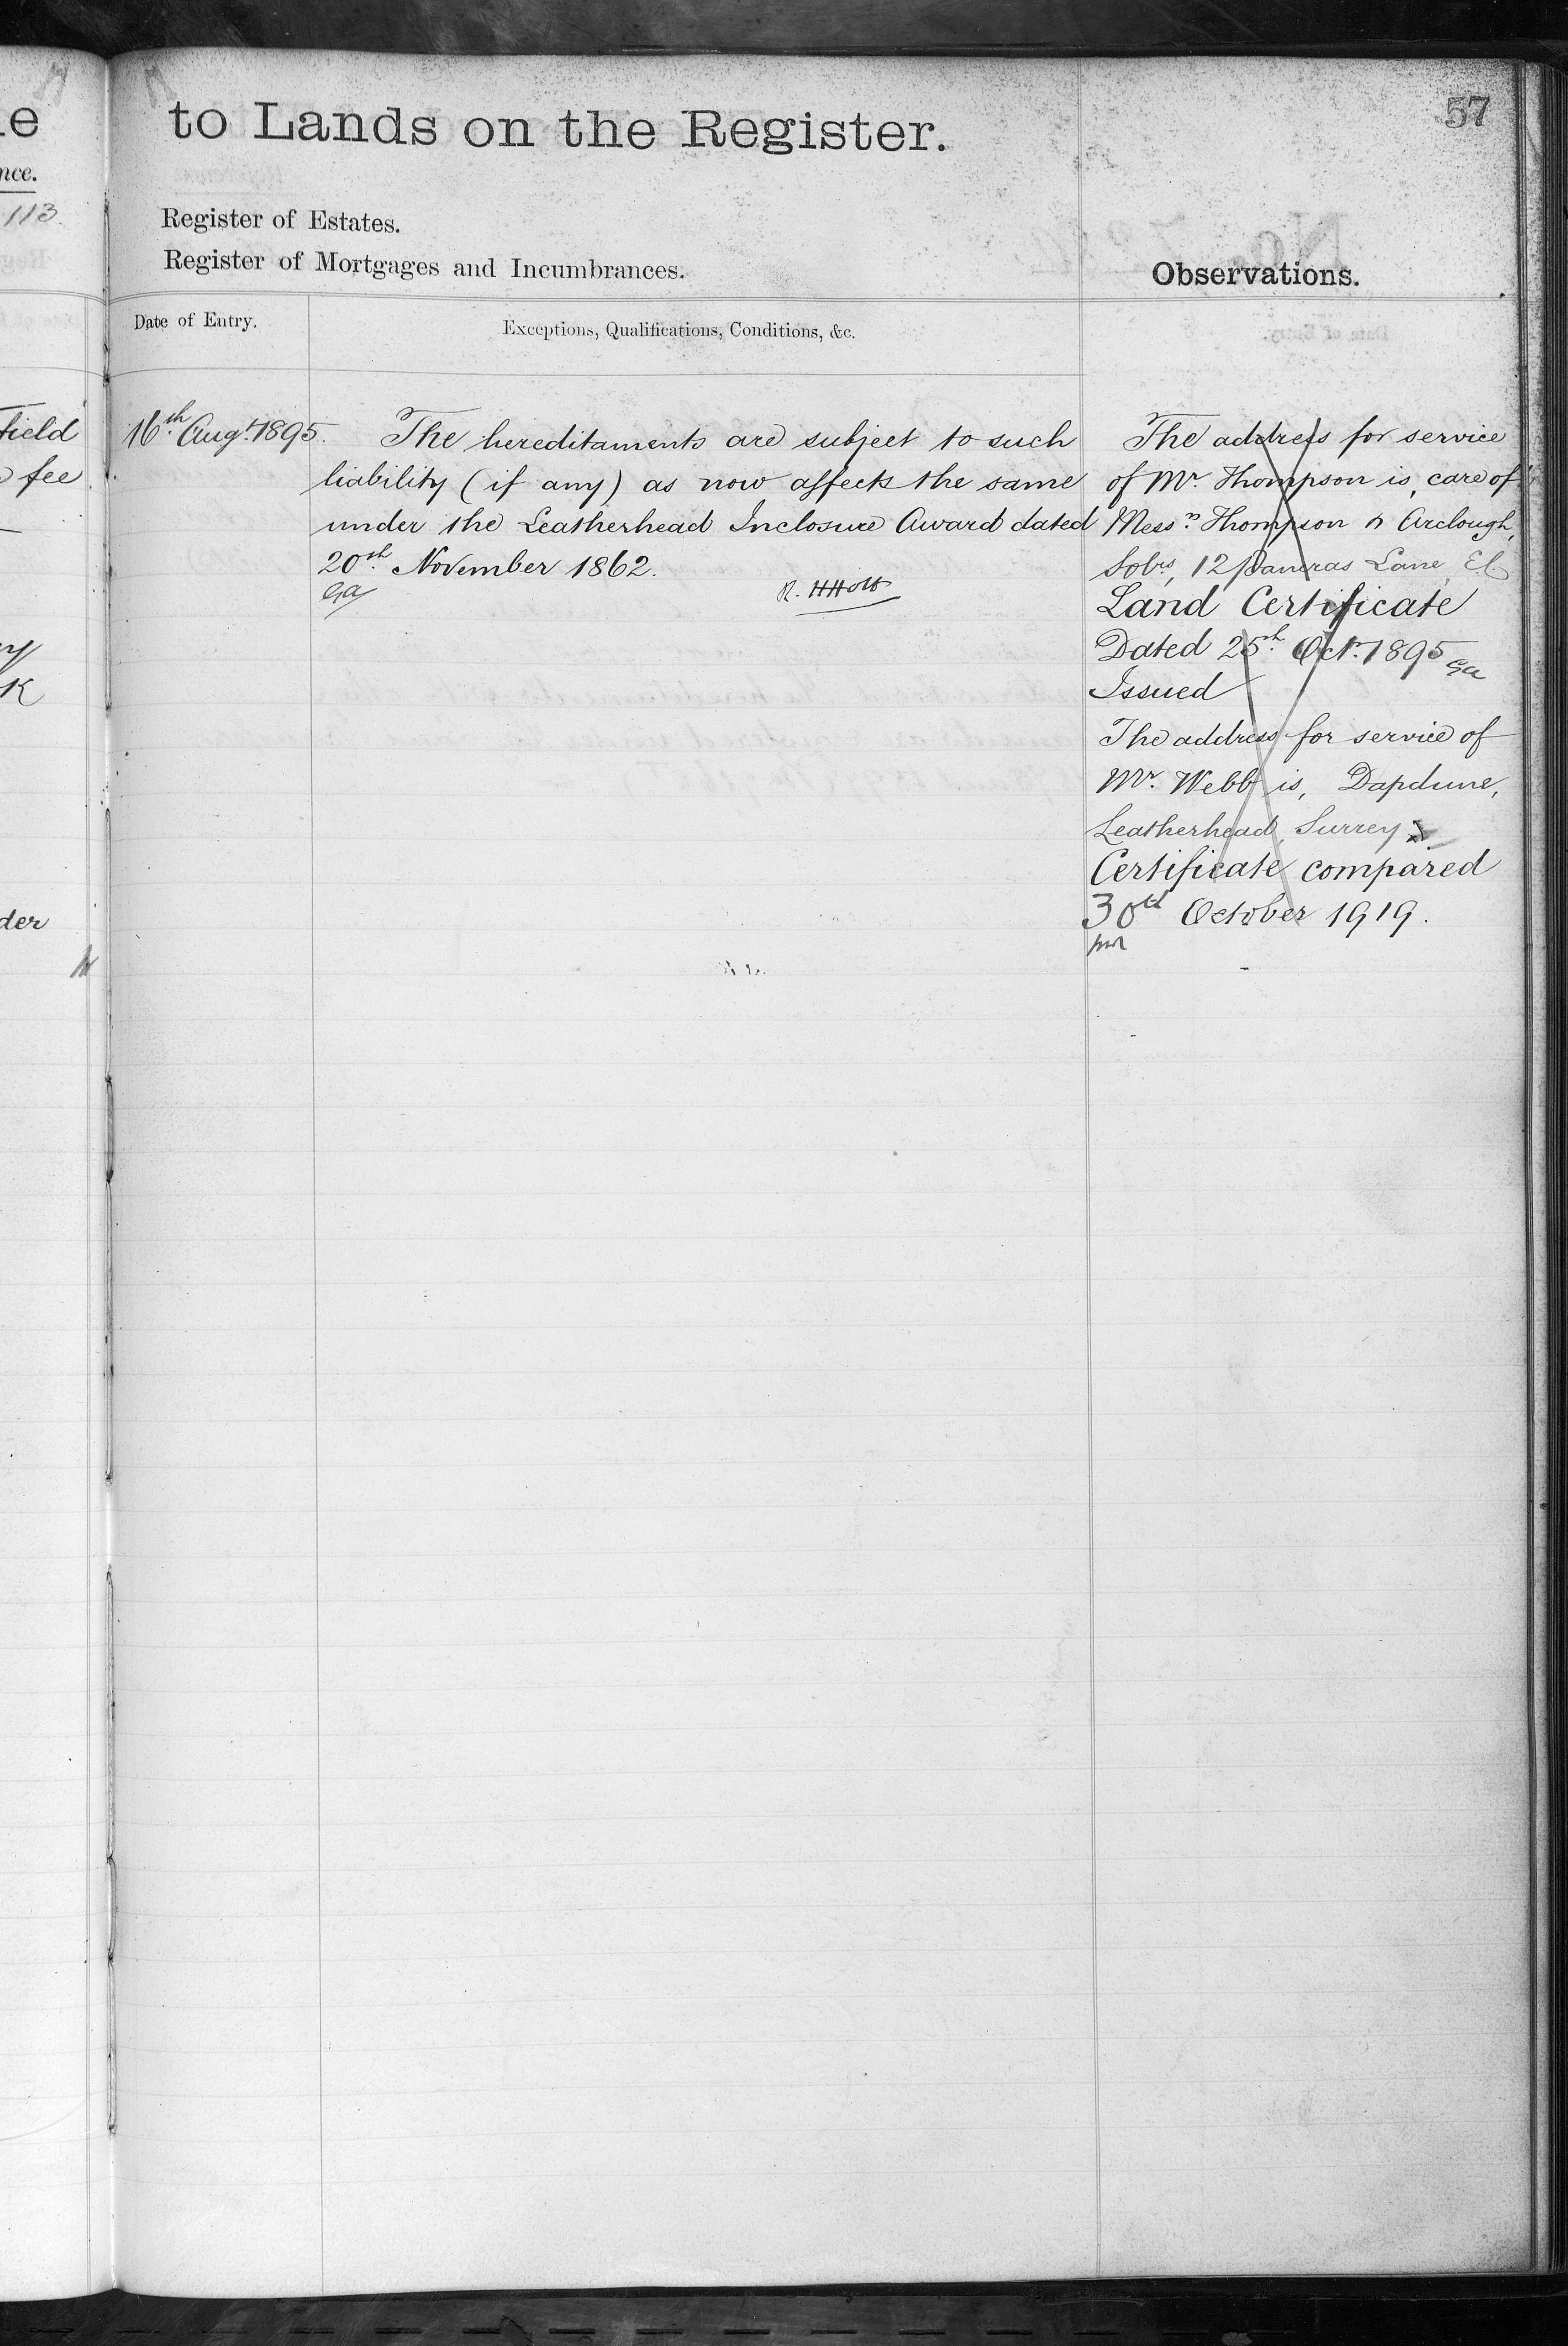 57
to Lands on the Register.
Register of Estates.
Register of Mortgages and Incumbrances.
Observations.
Date of Entry.
Exceptions, Qualifications, Conditions, &c.
nce.
113.
field
fee
der
16th Augt. 1895.
The hereditaments are subject to such
liability (if any) as now affects the same
under the Leatherhead Inclosure Award dated
20th November 1862.
The address for service
of Mr. Thompson is, care of
Messrs. Thompson &
12 Pancras Lane, E.C.
Land Certificate
Dated 25th Octr. 1895
Issued
The address for service of
Mr. Webb is, Dapdune,
Leatherhead, Surrey
Certificate compared
30th October 1919.